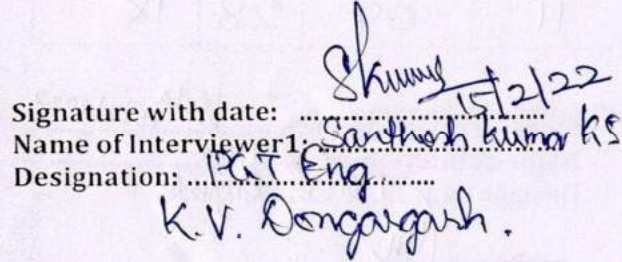 Signature with date: Skumar 15/2/22
Name of Interviewer1: Santhosh kumar KS
Designation: PGT Eng
K.V. Dongargarh.